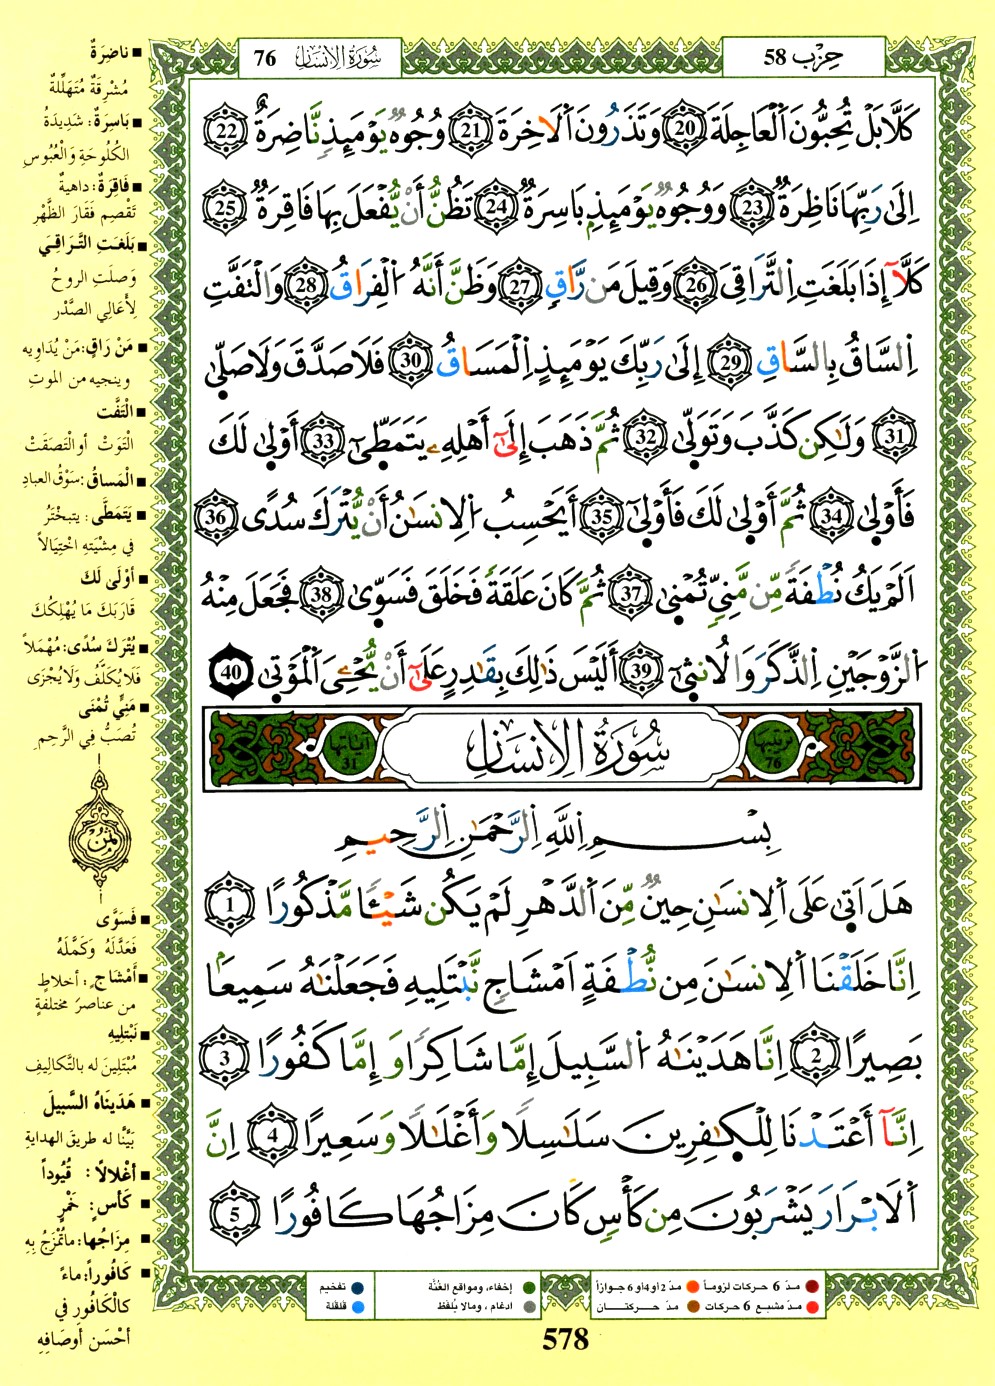 حِزْب 58
سُورَةُ الاِنسَانِ 76
كَلَّا بَلْ تُحِبُّونَ اَلْعَاجِلَةَ 20 وَتَذَرُونَ اَلَاخِرَةَ 21 وُجُوهٞ يَوْمَئِذٖ نَّاضِرَةٌ 22
اِلَىٰ رَبِّهَا نَاظِرَةٞ 23 وَوُجُوهٞ يَوْمَئِذِۢ بَاسِرَةٞ 24 تَظُنُّ أَنْ يُّفْعَلَ بِهَا فَاقِرَةٞ 25
كَلَّآ إِذَا بَلَغَتِ اِلتَّرَاقِيَ 26 وَقِيلَ مَن رَّاقٖ 27 وَظَنَّ أَنَّهُ اُ۬لْفِرَاقُ 28 وَالْتَفَّتِ
اِلسَّاقُ بِالسَّاقِ 29 إِلَىٰ رَبِّكَ يَوْمَئِذٍ اِلْمَسَاقُ 30 فَلَا صَدَّقَ وَلَا صَلّ۪ىٰ
31 وَلَٰكِن كَذَّبَ وَتَوَلّ۪ىٰ 32 ثُمَّ ذَهَبَ إِلَىٰٓ أَهْلِهِۦ يَتَمَطّ۪ىٰٓ 33 أَوْل۪ىٰ لَكَ
فَأَوْل۪ىٰ 34 ثُمَّ أَوْل۪ىٰ لَكَ فَأَوْل۪ىٰٓ 35 أَيَحْسِبُ اُ۬لِانسَٰنُ أَنْ يُّتْرَكَ سُدًى 36
اَلَمْ يَكُ نُطْفَةٗ مِّن مَّنِيّٖ تُمْن۪ىٰ 37 ثُمَّ كَانَ عَلَقَةٗ فَخَلَقَ فَسَوّ۪ىٰ 38 فَجَعَلَ مِنْهُ
اُ۬لزَّوْجَيْنِ اِلذَّكَرَ وَالُانث۪ىٰٓ 39 أَلَيْسَ ذَٰلِكَ بِقَٰدِرٍ عَلَىٰٓ أَنْ يُّحْـِۧيَ اَلْمَوْت۪ىٰ 40
ترتيبها 76
سُورَةُ الاِنسَانِ
اياتها 31
بِسْمِ اِللَّهِ اِلرَّحْمَٰنِ اِلرَّحِيمِ
هَلَ اَت۪ىٰ عَلَى اَلِانسَٰنِ حِينٞ مِّنَ اَلدَّهْرِ لَمْ يَكُن شَيْـٔٗا مَّذْكُورًا 1
اِنَّا خَلَقْنَا اَلِانسَٰنَ مِن نُّطْفَةٍ اَمْشَاجٖ نَّبْتَلِيهِ فَجَعَلْنَٰهُ سَمِيعَاۢ
بَصِيرًا 2 اِنَّا هَدَيْنَٰهُ اُ۬لسَّبِيلَ إِمَّا شَاكِرٗا وَإِمَّا كَفُورًا 3
اِنَّآ أَعْتَدْنَا لِلْكٰ۪فِرِينَ سَلَٰسِلٗا وَأَغْلَٰلٗا وَسَعِيرًا 4 اِنَّ
اَلَابْرَارَ يَشْرَبُونَ مِن كَأْسٖ كَانَ مِزَاجُهَا كَافُورًا 5
■ ناضِرَةٌ
مُشْرِقَةٌ مُتَهَلِّلَةٌ
■ بَاسِرَةٌ: شَدِيدَةُ
الكُلُوحَةِ وَالْعُبُوسِ
■ فَاقِرَةٌ: داهيةٌ
تَقْصِم فَقَارَ الظَّهْرِ
■ بَلَغَتِ التَّرَاقِيَ
وَصلَتِ الروحُ
لِأَعَالِي الصَّدْرِ
■ مَنْ رَاقٍ: مَنْ يُدَاوِيه
وينجيه من الموتِ
■ الْتَفَّت
الْتَوَتْ أو التَصَقَتْ
■ الْمَساقُ: سَوْقُ العبادِ
■ يَتَمَطَّى: يتبخْتَرُ
في مِشْيَتِهِ اخْتِيَالاً
■ أَوْلَى لَكَ
قَارَبَكَ مَا يُهْلِكُكَ
■ يُتْرَكَ سُدًى: مُهْمَلاً
فَلَا يُكَلَّفُ وَلَا يُجْزَى
■ مَنِيٍّ تُمْنَى
تُصَبُّ فِي الرَّحِمِ
ثُمُن
■ فَسَوَّى
فَعَدَّلَهُ وَكَمَّلَهُ
■ أَمْشَاجٍ: أخلاطٍ
من عناصرَ مختلفةٍ
■ نَبْتَلِيهِ
مُبْتَلِينَ له بالتَّكاليفِ
■ هَدَيناهُ السَّبيلَ
بَيَّنَّا له طريقَ الهدايةِ
■ أغْلالًا: قُيُوداً
■ كَأْسٍ: خَمْرٍ
■ مِزَاجُها: مَاتُمْزَجُ بِهِ
■ كَافُوراً: ماءً
كالْكَافُورِ في
أحْسَن أوصَافِهِ
مدّ 6 حركات لزوماً
مدّ 2 او 4 او 6 جوازاً
إخفاء، ومواقع الغُنَّة
تفخيم
مدّ مشبع 6 حركات
مدّ حركتان
ادغام، ومالا يُلفظ
قلقلة
578